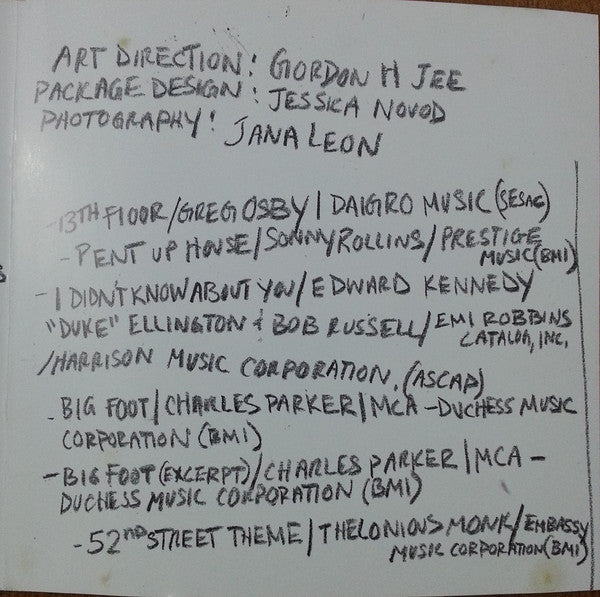 ART DIRECTION: GORDON H JEE
PACKAGE DESIGN: JESSICA NOVOD
PHOTOGRAPHY: JANA LEON
-13TH FLOOR/GREG OSBY/DAIGRO MUSIC (SESAC)
-PENT UP HOUSE/SONNY ROLLINS/PRESTIGE
MUSIC (BMI)
-I DIDN'T KNOW ABOUT YOU/EDWARD KENNEDY
"DUKE" ELLINGTON & BOB RUSSELL/EMI ROBBINS
CATALOG, INC.
/HARRISON MUSIC CORPORATION. (ASCAP)
-BIG FOOT/CHARLES PARKER/MCA-DUCHESS MUSIC
CORPORATION (BMI)
-BIG FOOT (EXCERPT)/CHARLES PARKER/MCA-
DUCHESS MUSIC CORPORATION (BMI)
-52nd STREET THEME/THELONIOUS MONK/EMBASSY
MUSIC CORPORATION (BMI)